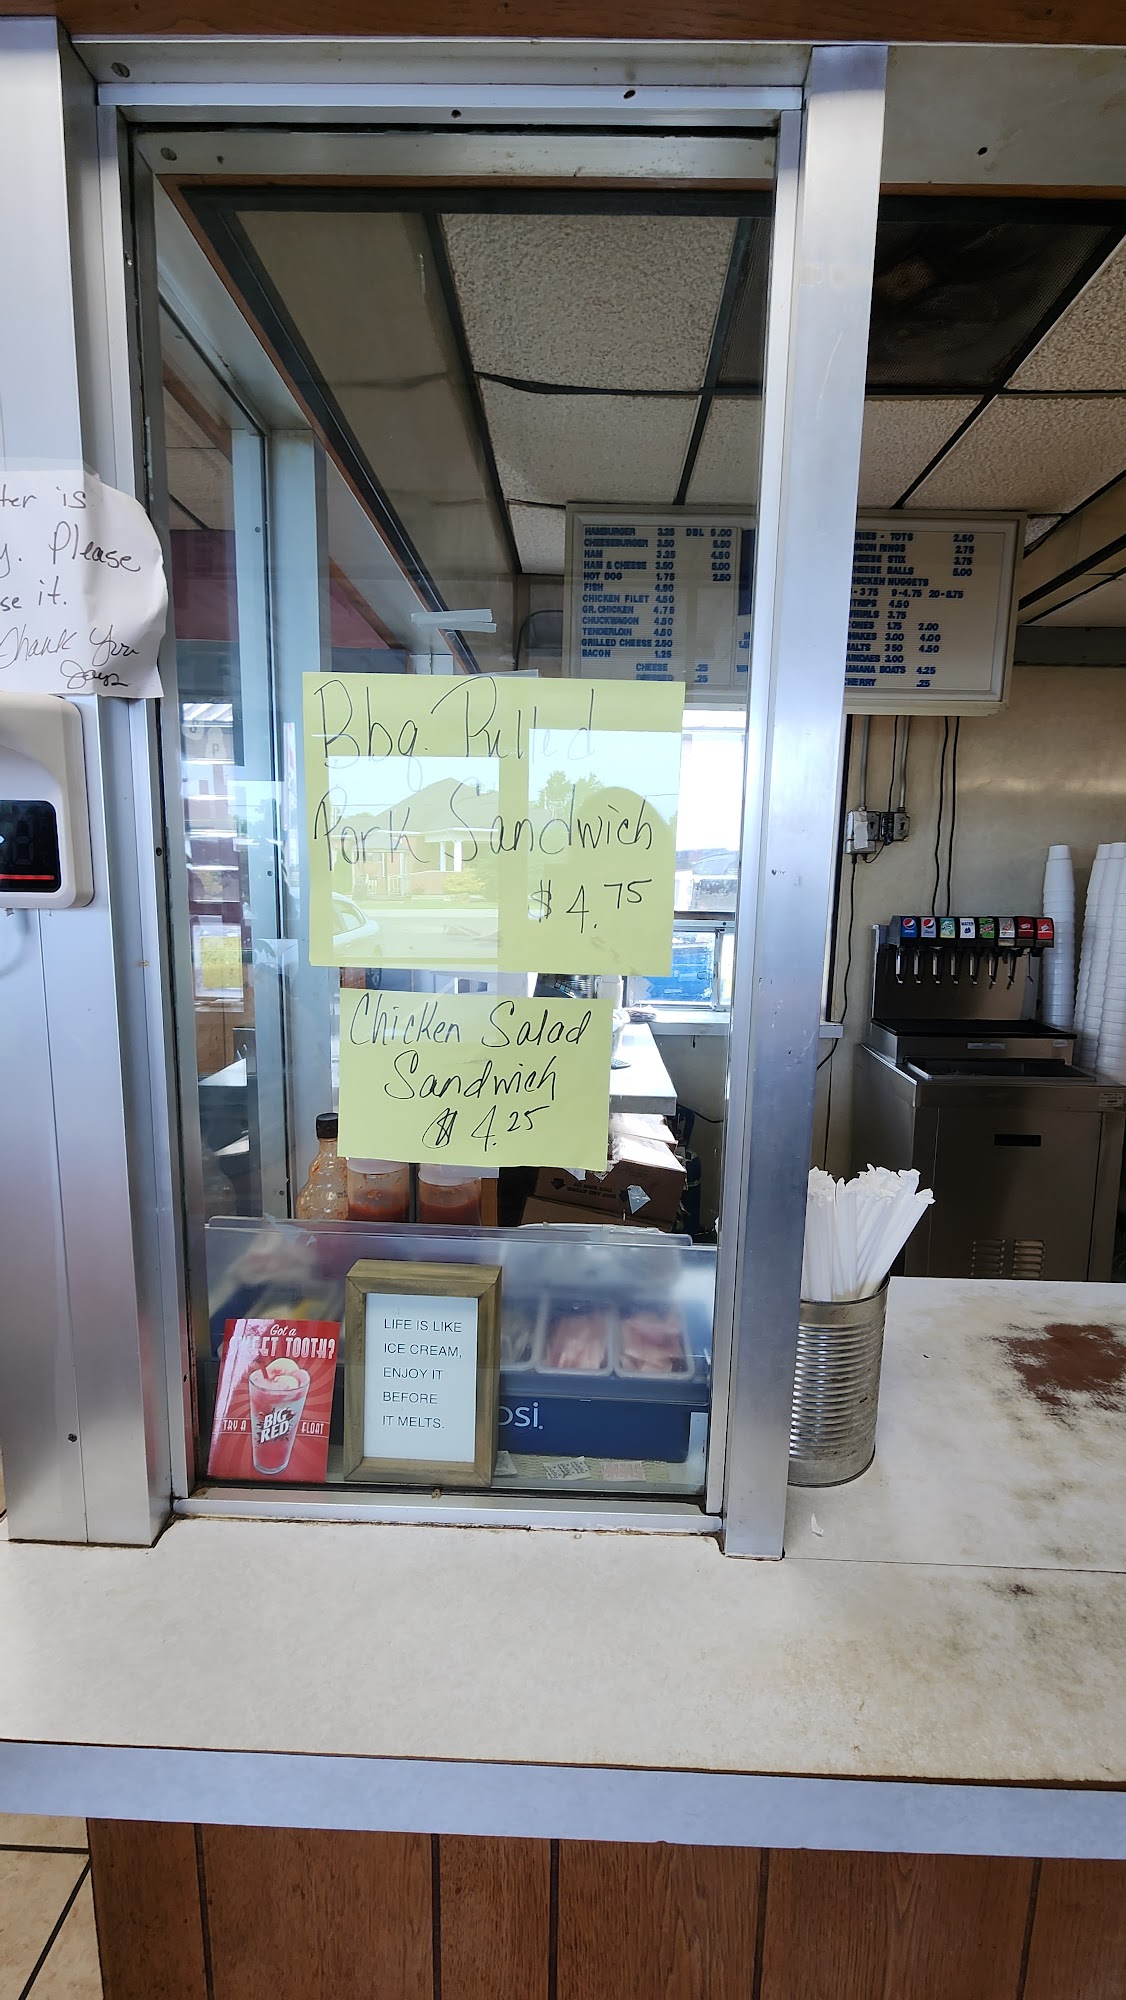 is
Please
it.
Thank You
HAMBURGER 3.25 DBL 5.00
CHEESEBURGER 3.50 5.50
HAM 3.25 4.50
HAM & CHEESE 3.50 5.00
HOT DOG 1.75 2.50
FISH 4.50
CHICKEN FILET 4.50
GR. CHICKEN 4.75
CHUCKWAGON 4.50
TENDERLOIN 4.50
GRILLED CHEESE 2.50
BACON 1.25
CHEESE .25
.25
- TOTS 2.50
RINGS 2.75
STIX 3.75
BALLS 5.00
NUGGETS
- 3.75 9-4.75 20-8.75
4.50
3.75
1.75 2.00
3.00 4.00
3.50 4.50
3.00
BOATS 4.25
.25
Bbq. Pulled
Pork Sandwich
$4.75
Chicken Salad
Sandwich
$4.25
Got a
SWEET TOOTH?
TRY A BIG RED FLOAT
LIFE IS LIKE
ICE CREAM,
ENJOY IT
BEFORE
IT MELTS.